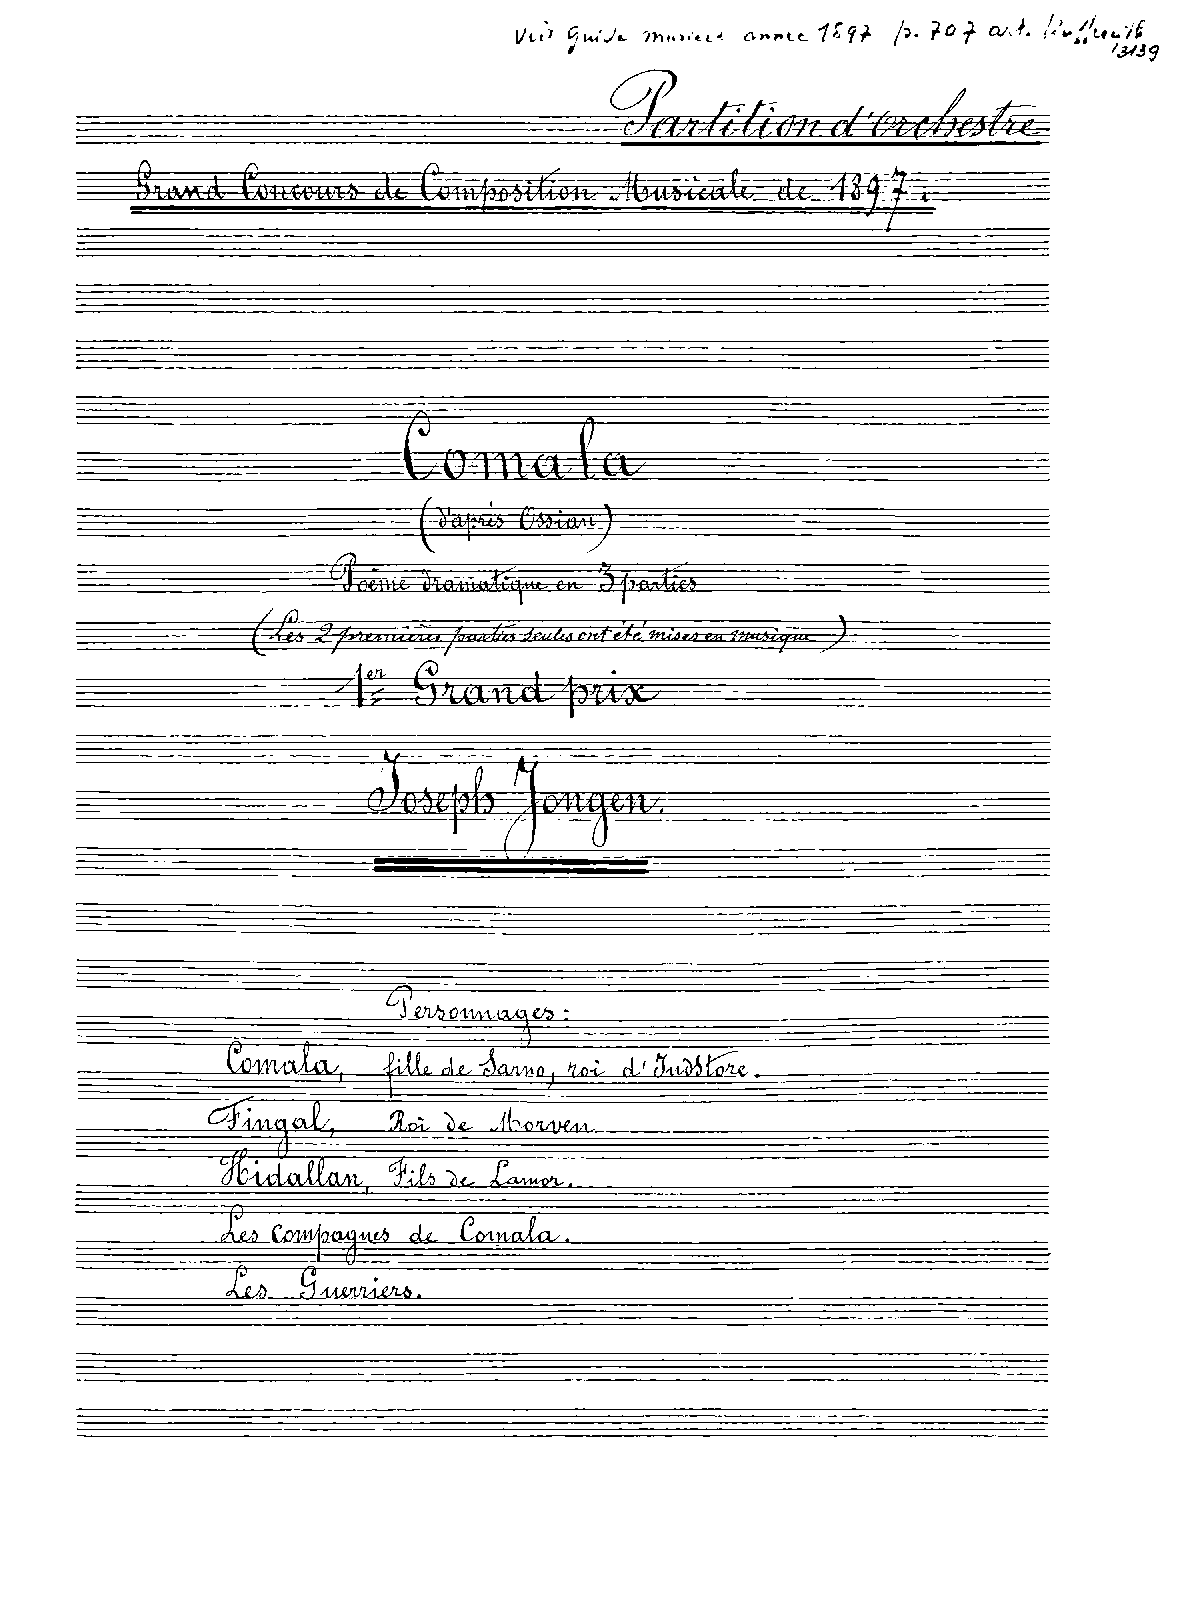 Voir Guide musical année 1897 p. 707 art.
13139
Partition d'orchestre
Grand Concours de Composition Musicale de 1897.
Comala
(d'après Ossian)
Poème dramatique en 3 parties
(Les 2 premières parties seules ont été mises en musique)
1er Grand prix
Joseph Jongen.
Personnages:
Comala, fille de Sarno, roi d'Indstore.
Fingal, Roi de Morven.
Hidallan, Fils de Lamor.
Les compagnes de Comala.
Les Guerriers.